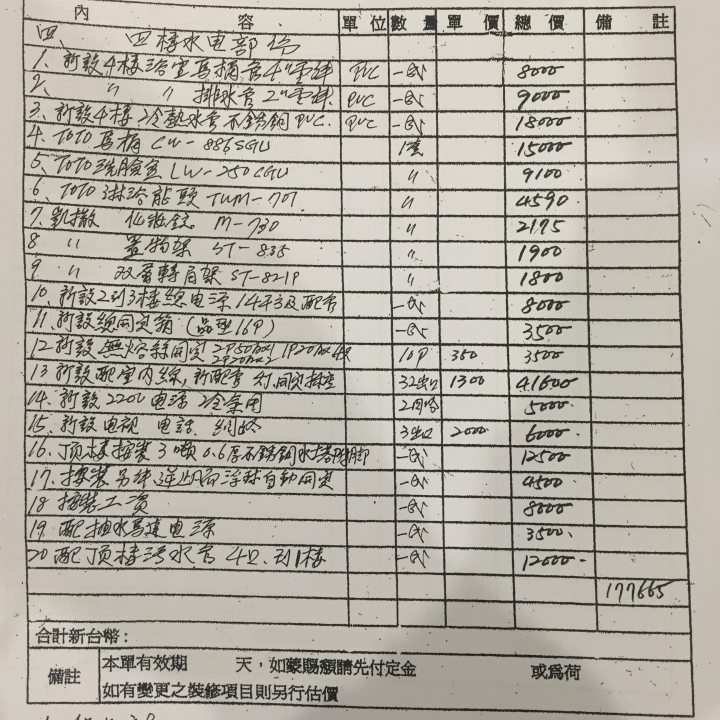 內 容 單位 數量 單價 總價 備註
四、 四樓水电部份
1、新設4樓浴室馬桶管4" PVC 一式 8000
2、 〃 〃 排水管2" PVC 一式 9000
3、新設4樓冷熱水管不銹鋼PVC. PVC 一式 18000
4、TOTO馬桶 CW-886SGU 1套 15000
5、TOTO洗臉盆 LW-250CGU 〃 9100
6、TOTO淋浴龍頭 TWM-707 〃 4590
7、凱撒 化妝鏡 M-730 〃 2175
8 〃 置物架 ST-835 〃 1900
9 〃 双層轉角架 ST-821P 〃 1800
10、新設2到3樓線电源14平3及配管 一式 8000
11、新設總開关箱 16P 一式 3500
12新設無熔絲開关 10P 350 3500
13新設配室內線,新配管 灯.開关插座 32出口 1300 41600
14、新設220V电源 2冷气用 2回路 5000
15、新設电視 电話 網路 3出口 2000 6000
16、顶樓按裝3噸0.6厚不銹鋼水塔 一式 12500
17、按裝 逆止凡而浮球自動開关 一式 4500
18 按裝工資 一式 8000
19、配抽水馬達电源 一式 3500
20 配顶樓 水管 4口.到1樓 一式 12000
177665
合計新台幣:
備註 本單有效期 天,如蒙賜顧請先付定金 或為荷
如有變更之裝修項目則另行估價